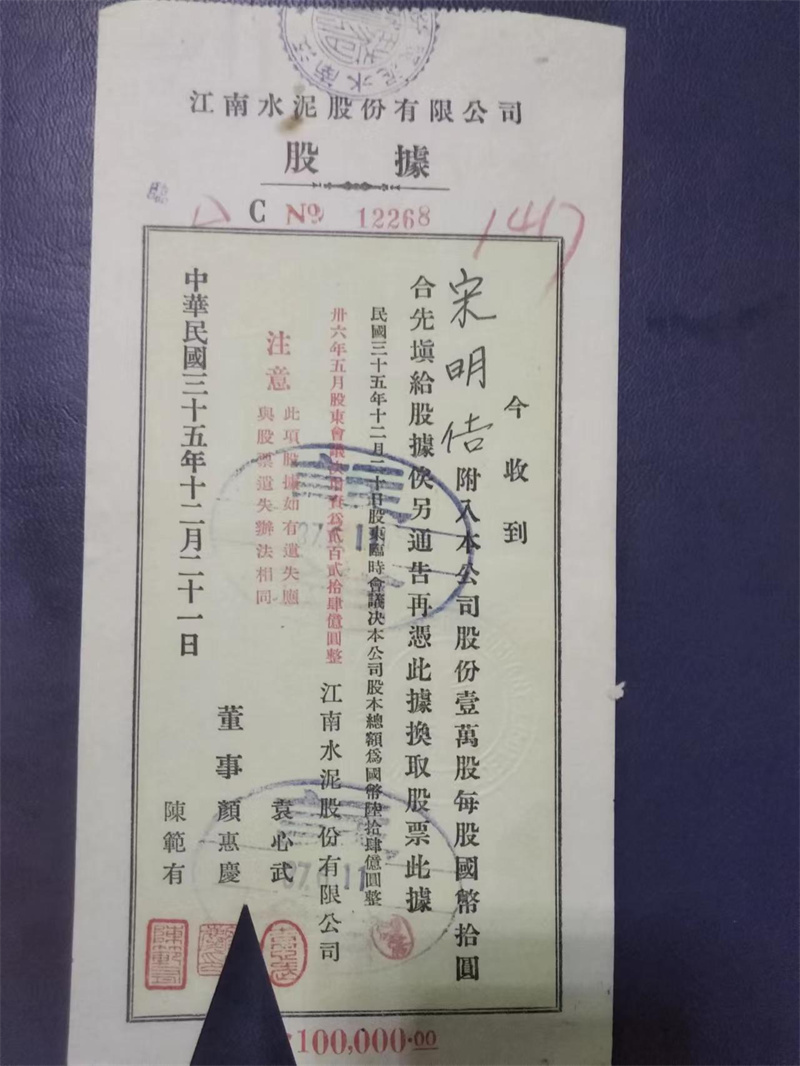 江南水泥股份有限公司
股據
C № 12268
147
今收到
宋明佶附入本公司股份壹萬股每股國幣拾圓
合先塡給股據俟另通告再憑此據換取股票此據
民國三十五年十二月二十日股東臨時會議決本公司股本總額爲國幣陸拾肆億圓整
卅六年五月股東會議決增資爲貳百貳拾肆億圓整
江南水泥股份有限公司
注意
此項股據如有遺失應
與股票遺失辦法相同
董事
袁心武
顏惠慶
陳範有
中華民國三十五年十二月二十一日
100,000.00